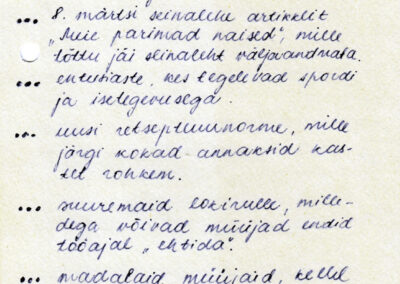 ... 8. märtsi seinalehe artiklit
„Meie parimad naised", mille
tõttu jäi seinaleht väljaandmata.
... entusiaste, kes tegelevad spordi
ja isetegevusega.
... uusi retseptuurnorme, mille
järgi kokad annaksid kas-
tet rohkem.
... suuremaid lokirulle, mille-
dega võivad müüjad endid
tööajal „ehtida".
... madalaid müüjaid, kellel